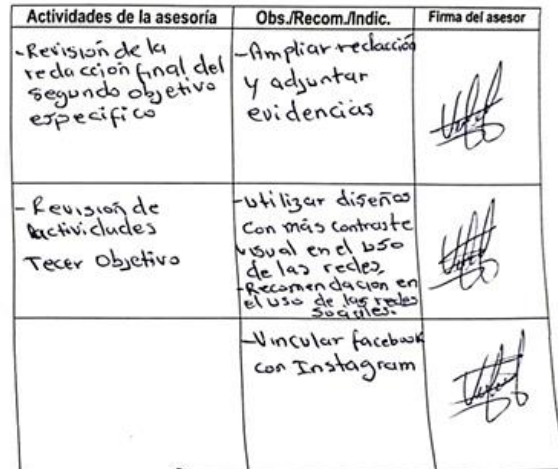 Actividades de la asesoría
Obs./Recom./Indic.
Firma del asesor
-Revisión de la
redacción final del
segundo objetivo
especifico
-Ampliar redacción
y adjuntar
evidencias
-Revisión de
actividades
Tecer Objetivo
-Utilizar diseños
con más contraste
visual en el uso
de las redes,
-Recomendacion en
el uso de las redes
sociales.
-Vincular facebook
con Instagram